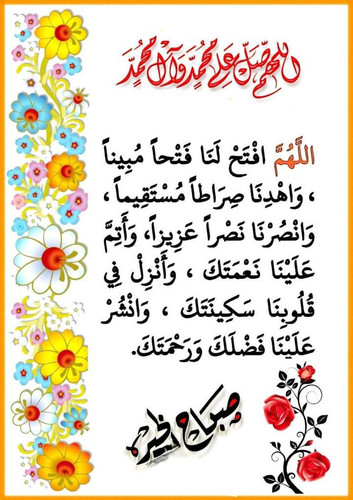 اللهم صل على محمد وآل محمد
اللَّهُمَّ افْتَحْ لَنَا فَتْحاً مُبِيناً
، وَاهْدِنَا صِرَاطاً مُسْتَقِيماً ،
وَانْصُرْنَا نَصْراً عَزِيزاً، وَأَتِمَّ
عَلَيْنَا نَعْمَتَكَ ، وَأَنْزِلْ فِي
قُلُوبِنَا سَكِينَتَكَ ، وَانْشُرْ
عَلَيْنَا فَضْلَكَ وَرَحْمَتَكَ.
صباح الخير